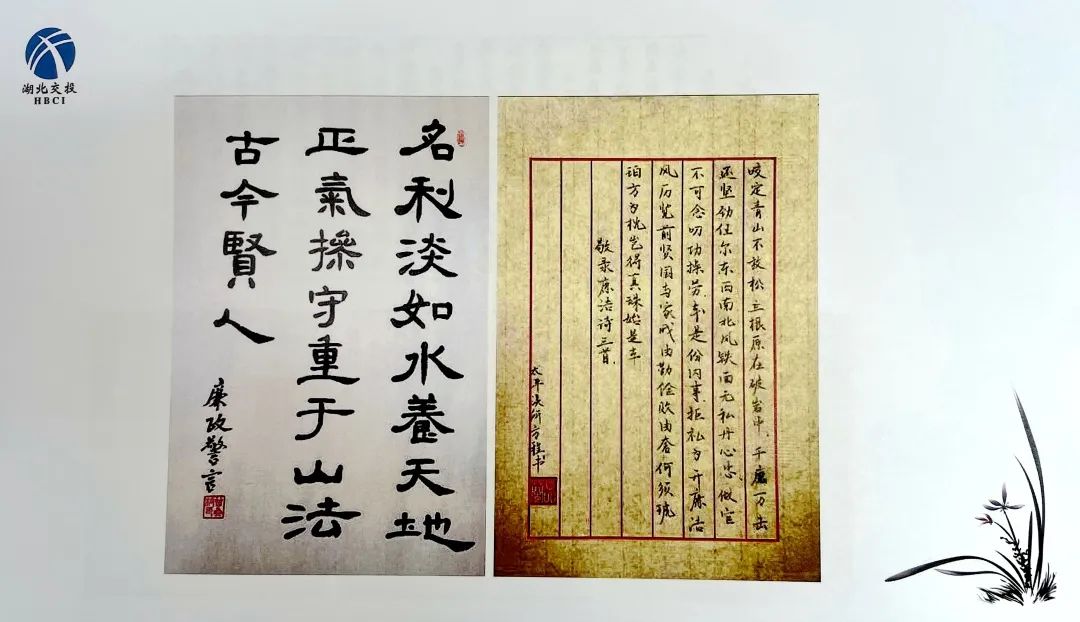 湖北交投
HBCI
名利淡如水養天地
正氣操守重于山法
古今賢人
廉政警言
咬定青山不放松立根原在破岩中，千磨万击
还坚劲任尔东西南北风铁面无私丹心忠做官
不可念叨功操劳本是份内事拒礼为开廉洁
风历览前贤国与家成由勤俭败由奢何须琥
珀方为枕岂得真珠始是车
敬录廉洁诗三首
太平溪所方程书